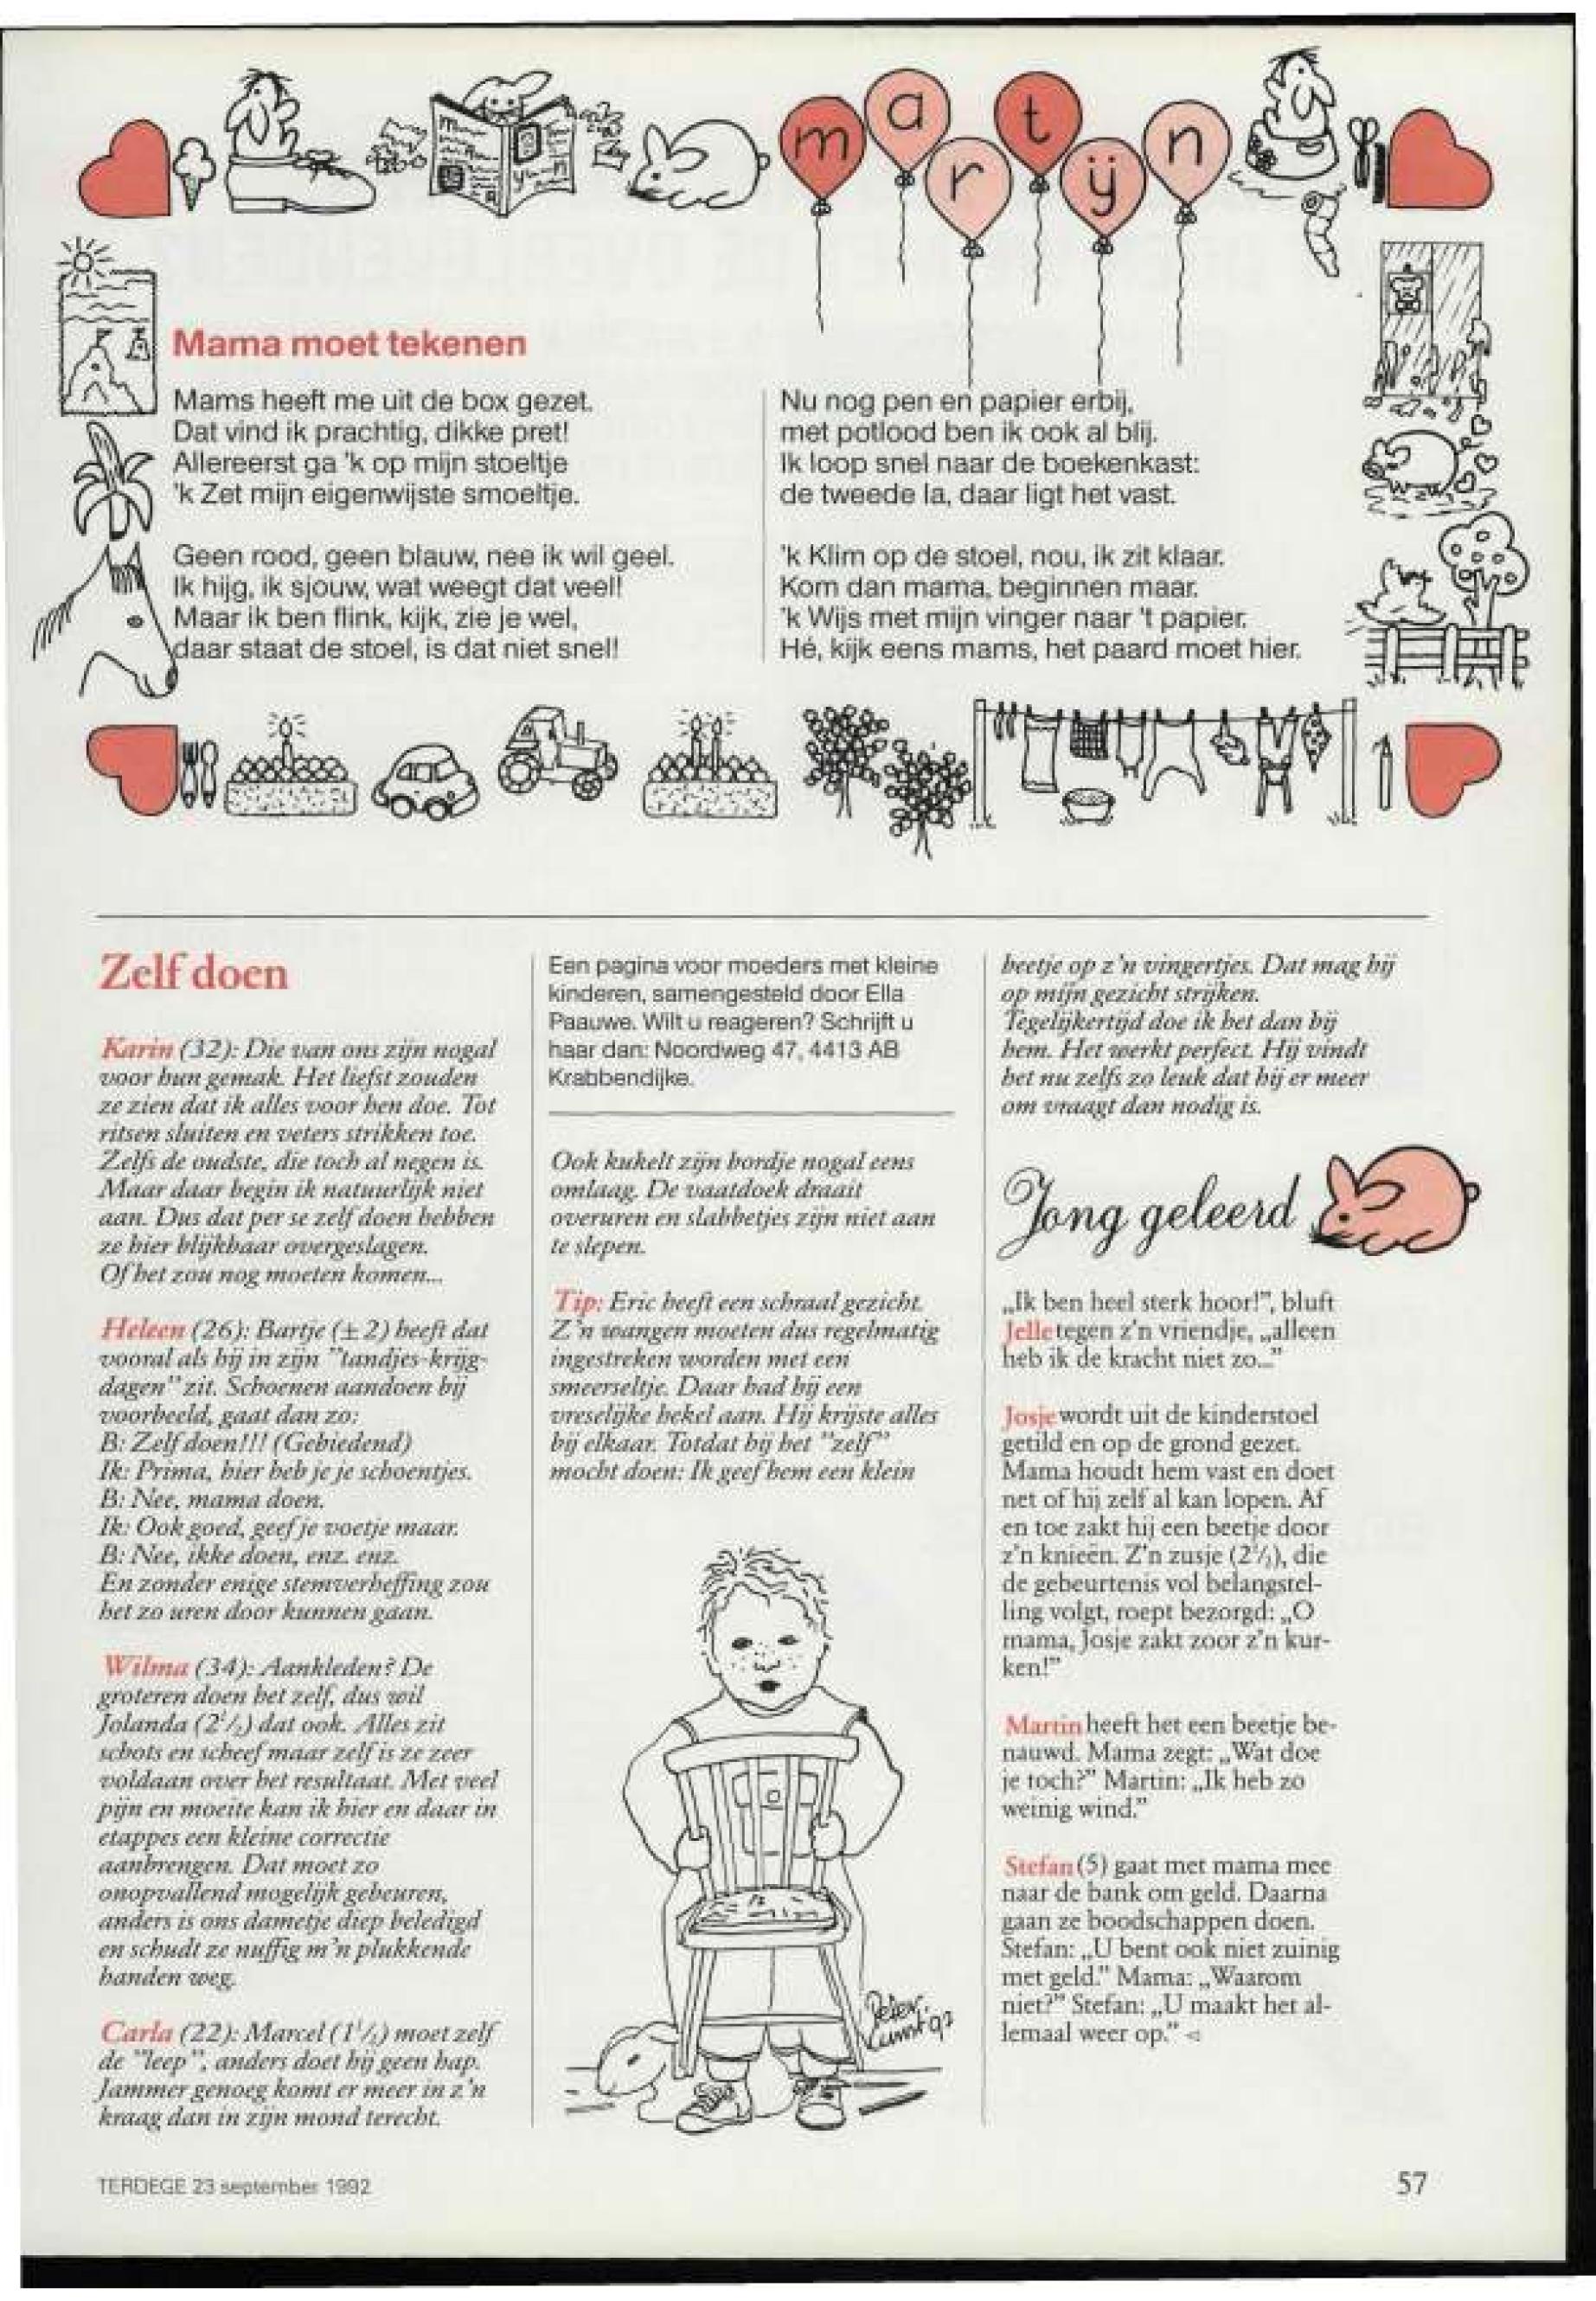 m a r t ij n
Mama moet tekenen
Mams heeft me uit de box gezet.
Dat vind ik prachtig, dikke pret!
Allereerst ga 'k op mijn stoeltje
'k Zet mijn eigenwijste smoeltje.
Geen rood, geen blauw, nee ik wil geel.
Ik hijg, ik sjouw, wat weegt dat veel!
Maar ik ben flink, kijk, zie je wel,
daar staat de stoel, is dat niet snel!
Nu nog pen en papier erbij,
met potlood ben ik ook al blij.
Ik loop snel naar de boekenkast:
de tweede la, daar ligt het vast.
'k Klim op de stoel, nou, ik zit klaar.
Kom dan mama, beginnen maar.
'k Wijs met mijn vinger naar 't papier.
Hé, kijk eens mams, het paard moet hier.
Zelf doen
Karin (32): Die van ons zijn nogal
voor hun gemak. Het liefst zouden
ze zien dat ik alles voor hen doe. Tot
ritsen sluiten en veters strikken toe.
Zelfs de oudste, die toch al negen is.
Maar daar begin ik natuurlijk niet
aan. Dus dat per se zelf doen hebben
ze hier blijkbaar overgeslagen.
Of het zou nog moeten komen...
Heleen (26): Bartje (±2) heeft dat
vooral als hij in zijn "tandjes-krijg-
dagen" zit. Schoenen aandoen bij
voorbeeld, gaat dan zo:
B: Zelf doen!!! (Gebiedend)
Ik: Prima, hier heb je je schoentjes.
B: Nee, mama doen.
Ik: Ook goed, geef je voetje maar.
B: Nee, ikke doen, enz. enz.
En zonder enige stemverheffing zou
het zo uren door kunnen gaan.
Wilma (34): Aankleden? De
groteren doen het zelf, dus wil
Jolanda (2½) dat ook. Alles zit
schots en scheef maar zelf is ze zeer
voldaan over het resultaat. Met veel
pijn en moeite kan ik hier en daar in
etappes een kleine correctie
aanbrengen. Dat moet zo
onopvallend mogelijk gebeuren,
anders is ons dametje diep beledigd
en schudt ze nuffig m'n plukkende
handen weg.
Carla (22): Marcel (1½) moet zelf
de "leep", anders doet hij geen hap.
Jammer genoeg komt er meer in z'n
kraag dan in zijn mond terecht.
Een pagina voor moeders met kleine
kinderen, samengesteld door Ella
Paauwe. Wilt u reageren? Schrijft u
haar dan: Noordweg 47, 4413 AB
Krabbendijke.
Ook kukelt zijn bordje nogal eens
omlaag. De vaatdoek draait
overuren en slabbetjes zijn niet aan
te slepen.
Tip: Eric heeft een schraal gezicht.
Z'n wangen moeten dus regelmatig
ingestreken worden met een
smeerseltje. Daar had hij een
vreselijke hekel aan. Hij krijste alles
bij elkaar. Totdat hij het "zelf"
mocht doen: Ik geef hem een klein
beetje op z'n vingertjes. Dat mag hij
op mijn gezicht strijken.
Tegelijkertijd doe ik het dan bij
hem. Het werkt perfect. Hij vindt
het nu zelfs zo leuk dat hij er meer
om vraagt dan nodig is.
Peter
92
Jong geleerd
„Ik ben heel sterk hoor!", bluft
Jelle tegen z'n vriendje, „alleen
heb ik de kracht niet zo..."
Josje wordt uit de kinderstoel
getild en op de grond gezet.
Mama houdt hem vast en doet
net of hij zelf al kan lopen. Af
en toe zakt hij een beetje door
z'n knieën. Z'n zusje (2½), die
de gebeurtenis vol belangstel-
ling volgt, roept bezorgd: „O
mama, Josje zakt zoor z'n kur-
ken!"
Martin heeft het een beetje be-
nauwd. Mama zegt: „Wat doe
je toch?" Martin: „Ik heb zo
weinig wind."
Stefan (5) gaat met mama mee
naar de bank om geld. Daarna
gaan ze boodschappen doen.
Stefan: „U bent ook niet zuinig
met geld." Mama: „Waarom
niet?" Stefan: „U maakt het al-
lemaal weer op." ◁
TERDEGE 23 september 1992
57